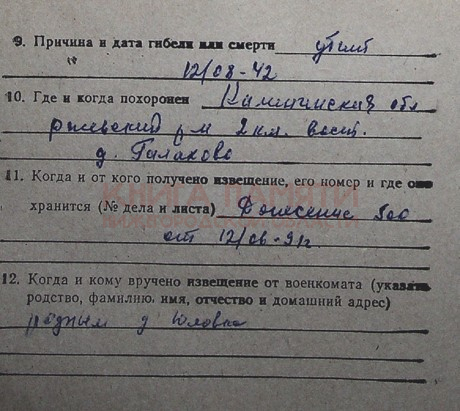 9. Причина и дата гибели или смерти убит
12/08-42
10. Где и когда похоронен Калининская обл
Ржевский р-н 2 км. вост.
д. Галахово
11. Когда и от кого получено извещение, его номер и где оно
КНИГА ПАМЯТИ
хранится (№ дела и листа) Донесение 500
от 12/06-91г
12. Когда и кому вручено извещение от военкомата (указать
родство, фамилию, имя, отчество и домашний адрес)
родным д Юловка